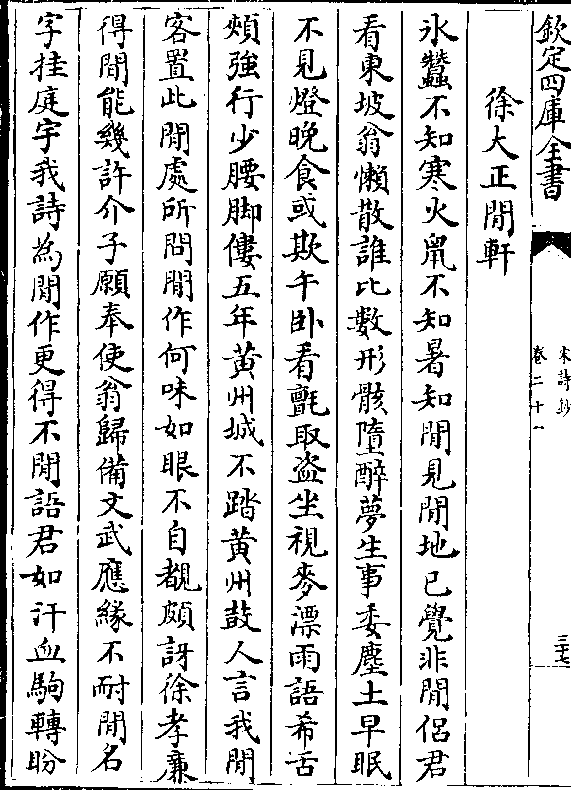 欽定四庫全書
宋詩鈔
卷二十一
三十七
徐大正閒軒
氷蠶不知寒火鼠不知暑知閒見閒地已覺非閒侶君
看東坡翁懶散誰比數形骸墮醉夢生事委塵土早眠
不見燈晚食或欺午卧看氊取盗坐視麥漂雨語希舌
頰強行少腰脚僂五年黄州城不踏黄州鼓人言我閒
客置此閒處所問閒作何味如眼不自覩頗訝徐孝廉
得閒能幾許介子願奉使翁歸備文武應緣不耐閒名
字挂庭宇我詩為閒作更得不閒語君如汗血駒轉盼